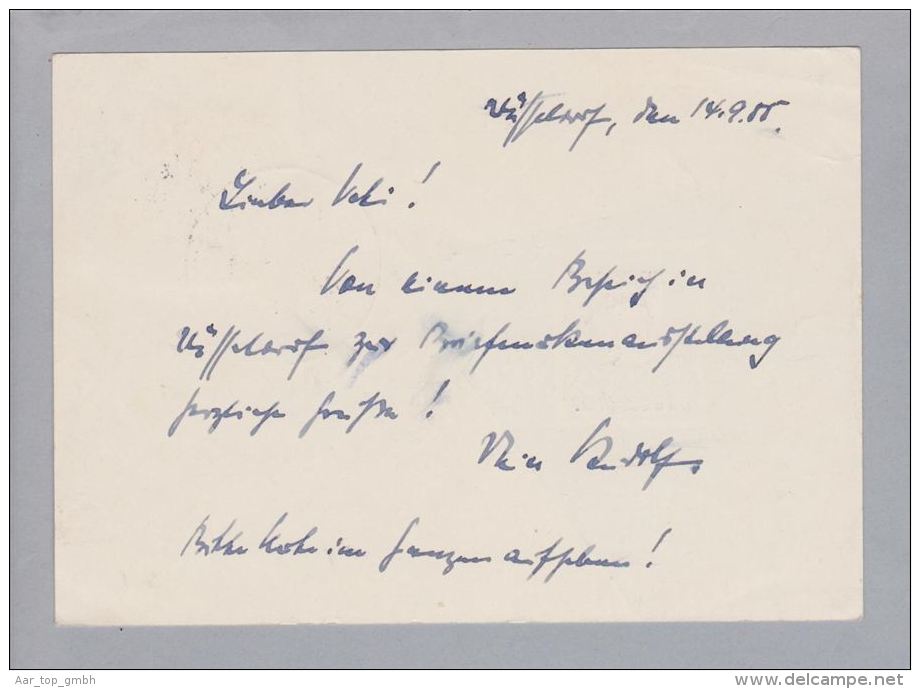 Düsseldorf, den 14.9.55.
Lieber !
Von einem Besuch in
Düsseldorf zur Briefmarkenausstellung
herzliche Grüße!
Dein Rudolf
Bitte Karte im Ganzen aufheben!
Aar_top_gmbh
www.delcampe.net